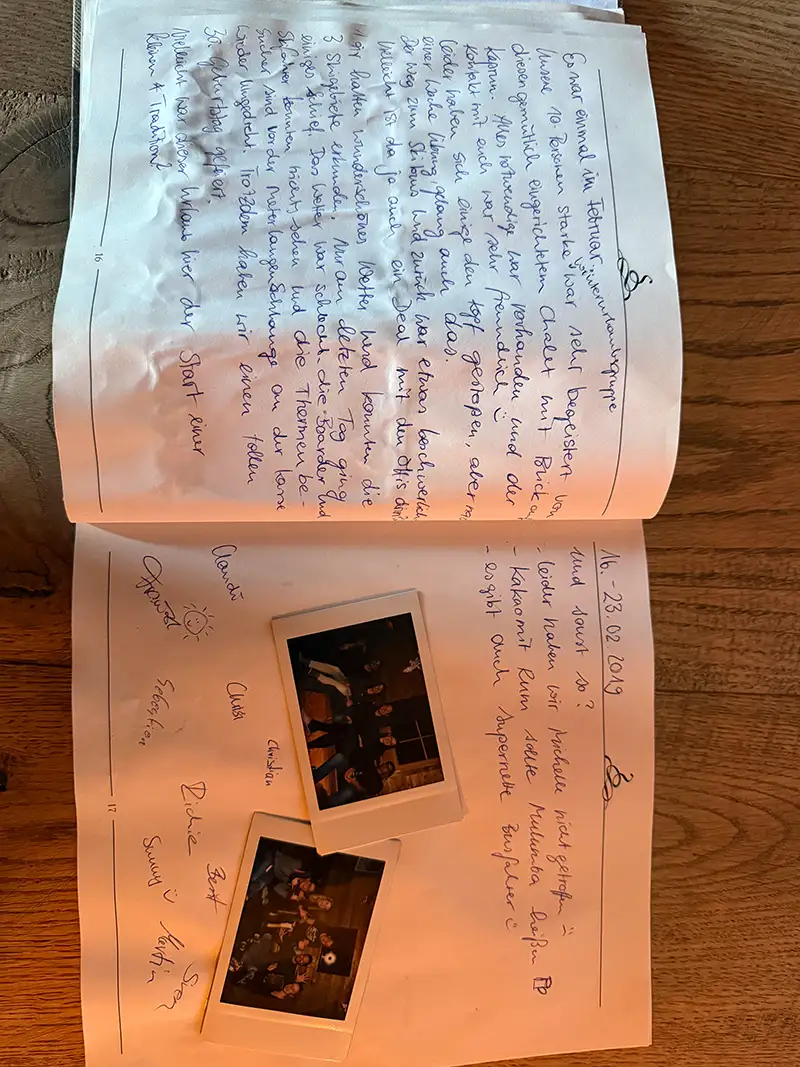 Es war einmal in Februar
Unsere 10-Personen starke Wintersturmtruppe war sehr begeistert von
diesem gemütlich eingerichteten Chalet mit Blick auf
Kaprun. Alles notwendige war vorhanden und der
Kontakt mit euch war sehr freundlich ☺
Leider haben sich einige den Kopf gestoßen, aber nach
einer Woche Übung gelang auch das.
Der Weg zum Skibus und zurück war etwas beschwerlich
vielleicht ist da ja auch ein Deal mit den Öffis drin?
Wir hatten wunderschönes Wetter und konnten die
3 Skigebiete erkunden. Nur am letzten Tag ging
einiges schief. Das Wetter war schlecht, die Boarder und
Skifahrer konnten nichts sehen und die Thermenbe-
sucher sind vor der Meterlangen Schlange an der Kasse
wieder umgedreht. Trotzdem haben wir einen tollen
30. Geburtstag gefeiert.
Vielleicht war dieser Urlaub hier der Start einer
kleinen Tradition!
16
16. - 23.02.2019
und sonst so?
- leider haben wir Michelle nicht getroffen
- Kakao mit Rum sollte Mulumba heißen
- es gibt auch supernette Busfahrer ☺
Claudi
Chrissi
Christian
Sebastian
Richie
Berit
Sunny ☺
Martin
17